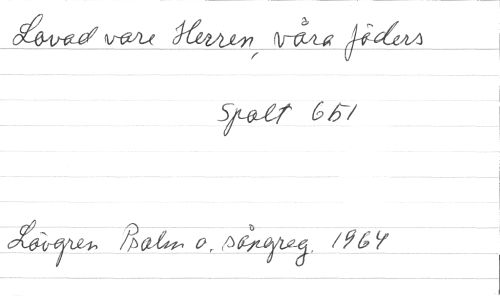 Lovad vare Herren, våra fäders
Spalt 651
Lövgren Psalm o. sångreg. 1964